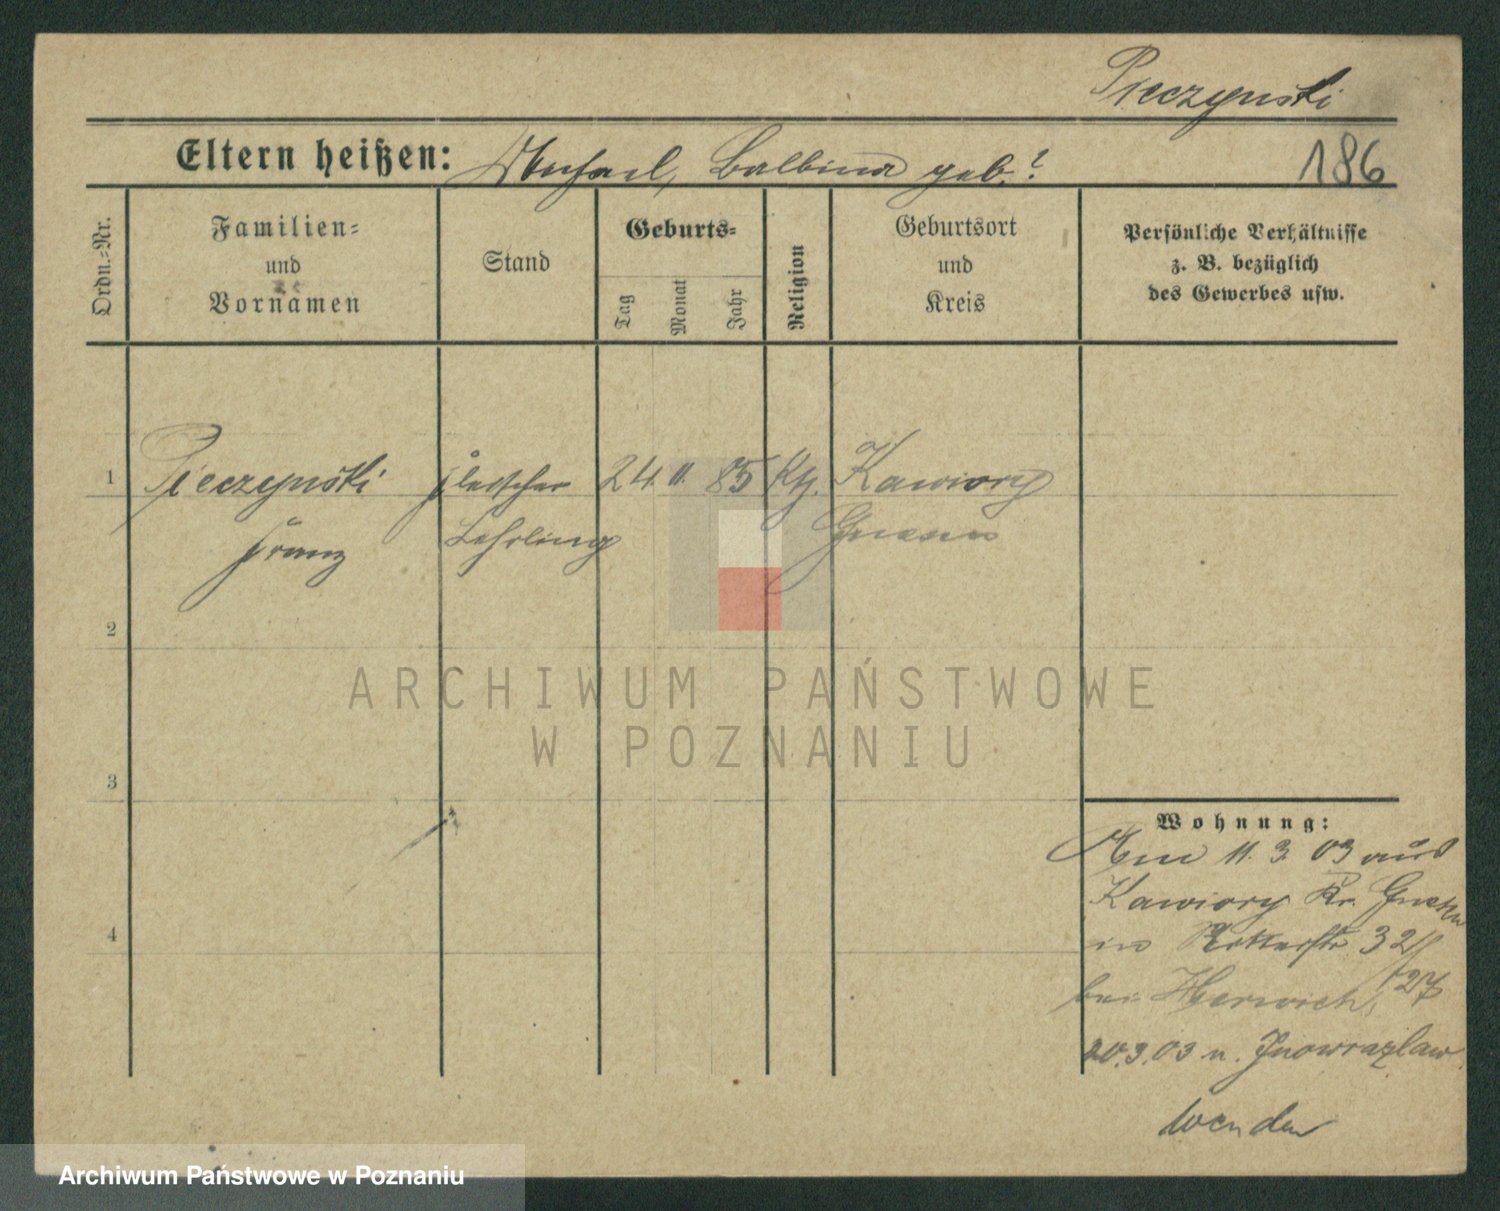 Pieczynski
Eltern heißen: Michael, Balbina geb. ?
186
Ordn.-Nr.
Familien-
und
Vornamen
Stand
Geburts-
Tag
Monat
Jahr
Religion
Geburtsort
und
Kreis
Persönliche Verhältnisse
z. B. bezüglich
des Gewerbes usw.
1 Pieczynski Fleischer 24. 11. 85 Kawiory
Franz Lehrling Gnesen
2
3
4
ARCHIWUM PAŃSTWOWE
W POZNANIU
Wohnung:
Am 11. 3. 03 aus
Kawiory Kr. Gnesen
in Ritterstr. 32
bei
20.3.03 n. Inowrazlaw
wenden
Archiwum Państwowe w Poznaniu